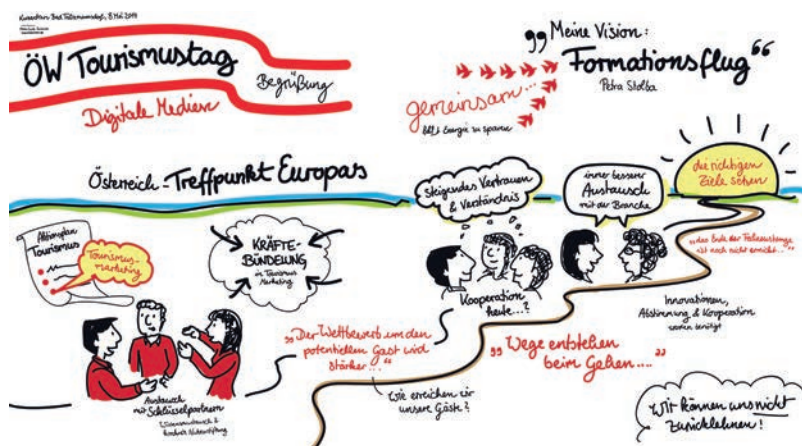 Kursalon Bad Tatzmannsdorf, 8. Mai 2014
ÖW Tourismustag
Begrüßung
Digitale Medien
"Meine Vision:
Formationsflug"
Petra Stolba
gemeinsam...
hilft Energie zu sparen
Österreich - Treffpunkt Europas
Aktionsplan
Tourismus
Tourismus-
marketing
KRÄFTE-
BÜNDELUNG
in Tourismus
Marketing
steigendes Vertrauen
& Verständnis
immer besserer
Austausch
mit der Branche
die richtigen
Ziele sehen
"das Ende der Fahnenstange
ist noch nicht erreicht..."
Kooperation
heute...?
Innovationen,
Abstimmung & Kooperation
werden benötigt
"Der Wettbewerb um den
potentiellen Gast wird
stärker..."
"Wege entstehen
beim Gehen...."
Wie erreichen wir
unsere Gäste?
Austausch
mit Schlüsselpartnern
Wir können uns nicht
zurücklehnen!